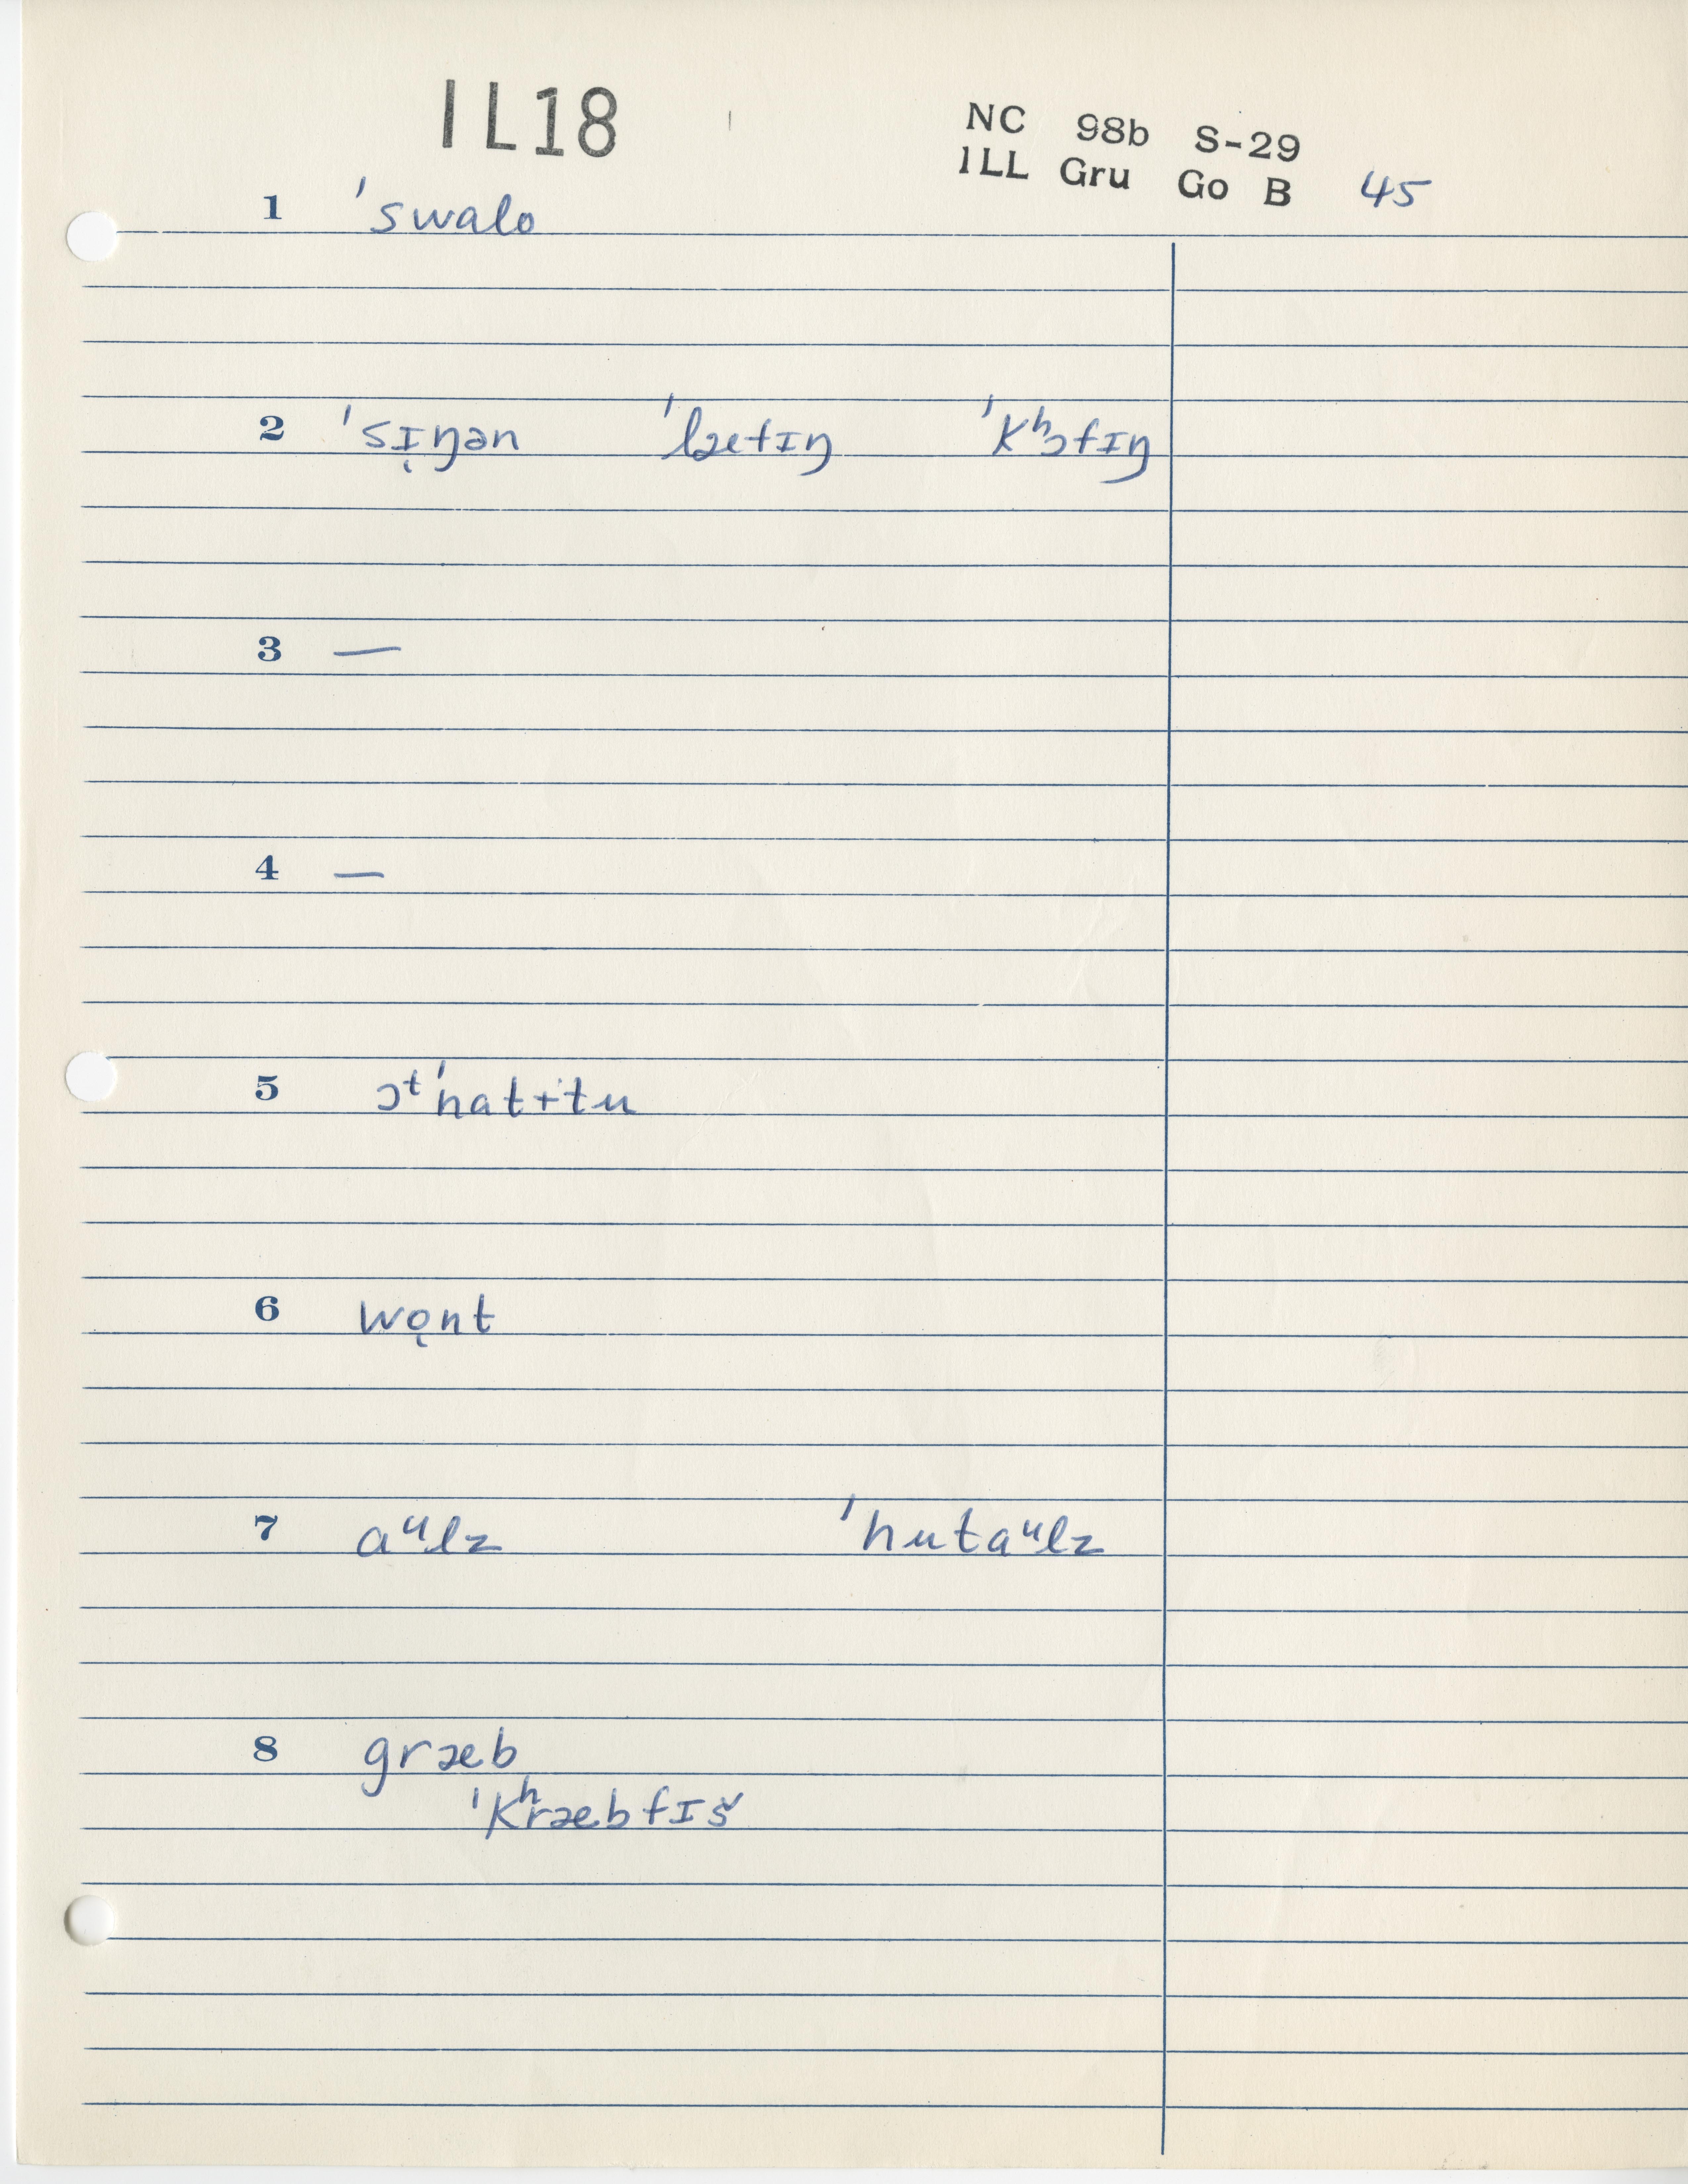 IL18
NC 98b S-29
ILL Gru Go B 45
1 ˈswalo
2 ˈsɪ̨ŋən ˈlæfɪŋ ˈkʰɔfɪŋ
3 —
4 —
5 ɔᵗˈnatɨtu
6 wo̜nt
7 aᵘlz ˈhutaᵘlz
8 græb
ˈkʰræbfɪš